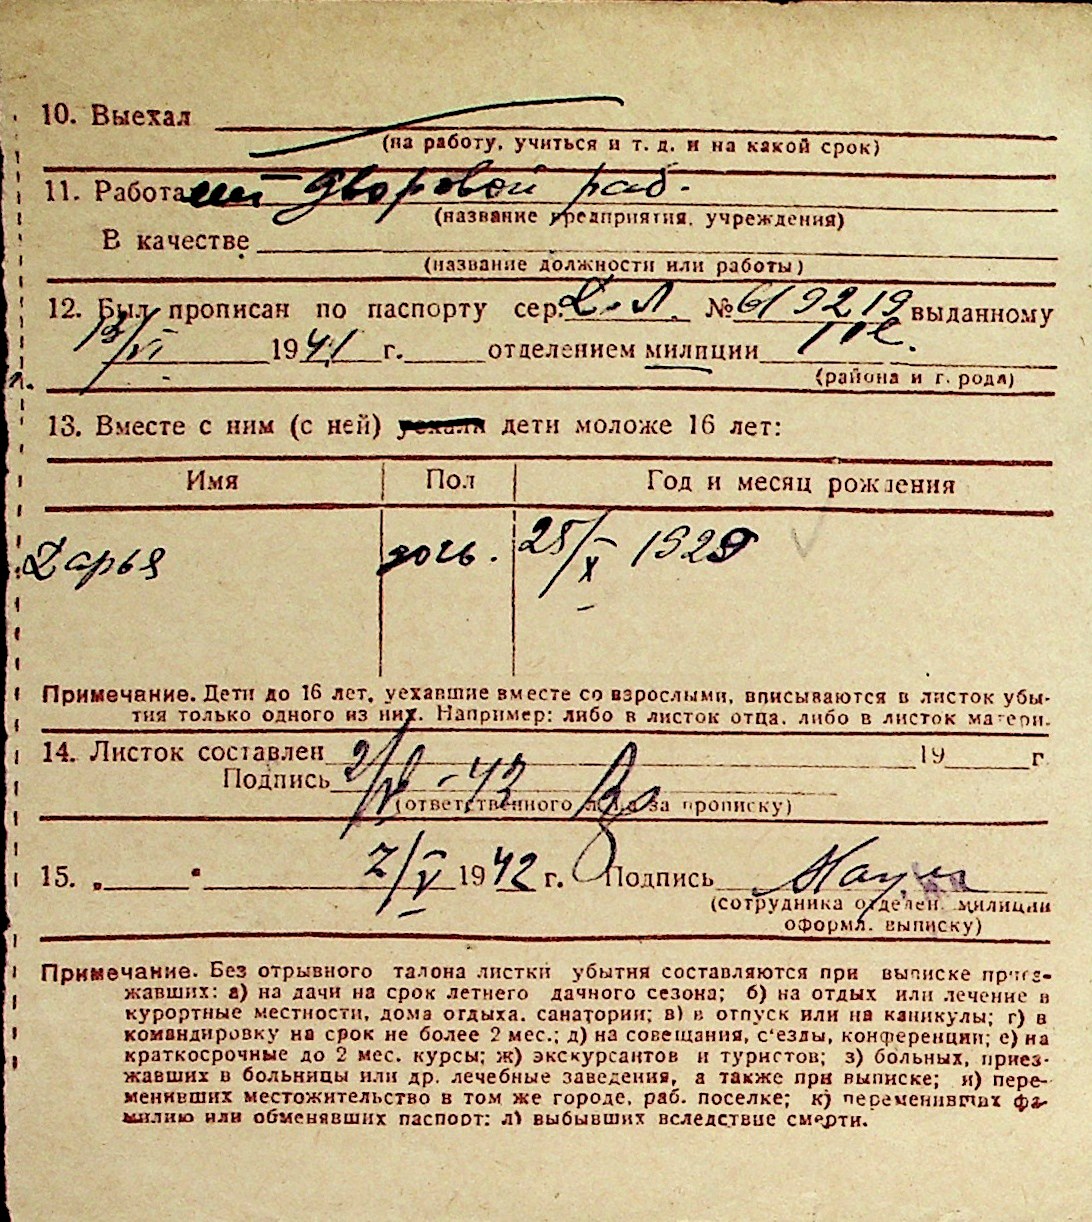 10. Выехал
(на работу, учиться и т. д. и на какой срок)
11. Работа дворовой раб.
(название предприятия, учреждения)
В качестве
(название должности или работы)
12. Был прописан по паспорту сер. № 619219 выданному
1941 г. отделением милиции
(района и г. рода)
13. Вместе с ним (с ней) уехали дети моложе 16 лет:
Имя Пол Год и месяц рождения
Дарья дочь. 25/X 1929
Примечание. Дети до 16 лет, уехавшие вместе со взрослыми, вписываются в листок убы-
тия только одного из них. Например: либо в листок отца, либо в листок матери.
14. Листок составлен 2/V-42 19 г
Подпись
(ответственного лица за прописку)
15. „ " 2/V 1942 г. Подпись
(сотрудника отделен. милиции
оформл. выписку)
Примечание. Без отрывного талона листки убытия составляются при выписке приез-
жавших: а) на дачи на срок летнего дачного сезона; б) на отдых или лечение в
курортные местности, дома отдыха, санатории; в) в отпуск или на каникулы; г) в
командировку на срок не более 2 мес.; д) на совещания, с'езды, конференции; е) на
краткосрочные до 2 мес. курсы; ж) экскурсантов и туристов; з) больных, приез-
жавших в больницы или др. лечебные заведения, а также при выписке; и) пере-
менивших местожительство в том же городе, раб. поселке; к) переменивших фа-
милию или обменявших паспорт; л) выбывших вследствие смерти.